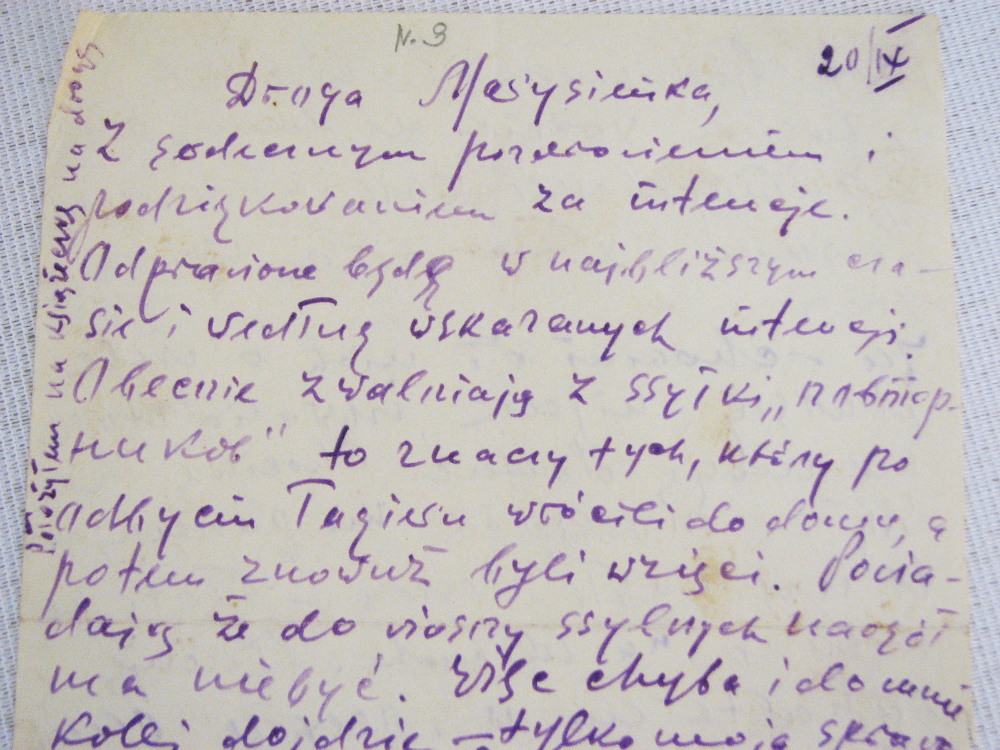 N. 9
20/IX
Droga Marysieńka,
Z serdecznym pozdrowieniem i
podziękowaniem za intencje.
Odprawione będą w najbliższym cza-
sie i według wskazanych intencji.
Obecnie zwalniają z ssyłki „повтор-
ников" to znaczy tych, którzy po
odbyciu łagieru wrócili do domu, a
potem znowuż byli wzięci. Powia-
dają że do wiosny ssylnych naogół
ma niebyć. Więc chyba i do mnie
kolej dojdzie – tylko moja
Położyłem na księżecznę na drogę